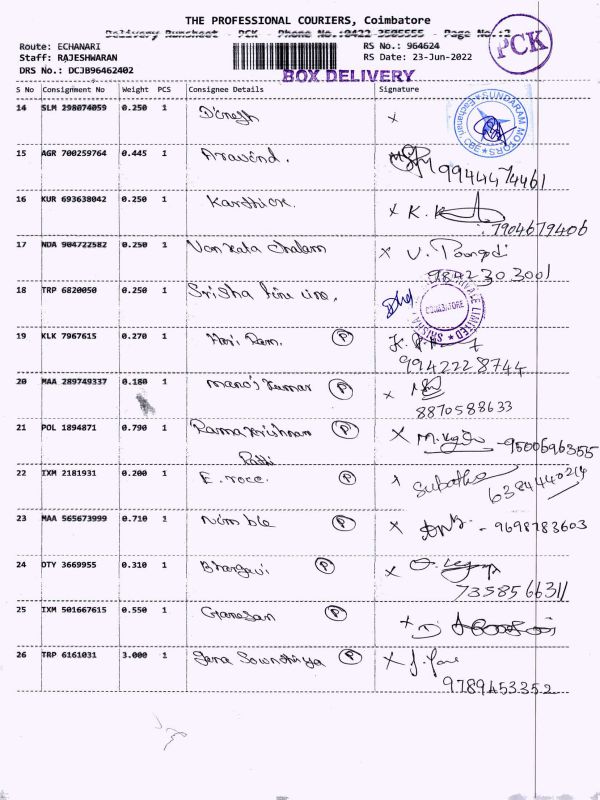 THE PROFESSIONAL COURIERS, Coimbatore
Delivery Runsheet - PCK - Phone No.:0422 3505555 - Page No.:2
PCK
Route: ECHANARI
RS No.: 964624
Staff: RAJESHWARAN
RS Date: 23-Jun-2022
DRS No.: DCJB96462402
BOX DELIVERY
S No Consignment No Weight PCS Consignee Details Signature
14 SLM 298074059 0.250 1 Dinesh x
SUNDARAM MOTORS CBE
15 AGR 700259764 0.445 1 Aravind. 9944474461
16 KUR 693638042 0.250 1 Karthick x K. 7904679406
17 NDA 904722582 0.250 1 Venkata chalam x V. 9842303001
18 TRP 6820050 0.250 1 Srisha
COIMBATORE
19 KLK 7967615 0.270 1 Hari Ram. P 9942228744
20 MAA 289749337 0.180 1 Manoj Kumar P x 8870588633
21 POL 1894871 0.790 1 Ramakrishnan P x -9500696355
22 IXM 2181931 0.200 1 E. P x Subatha
23 MAA 565673999 0.710 1 Nimble P x - 9698783603
24 OTY 3669955 0.310 1 Bhargavi P x 7358566311
25 IXM 501667615 0.550 1 Ganesan P x
26 TRP 6161031 3.000 1 Jena Sowndhirya P x 9789453352